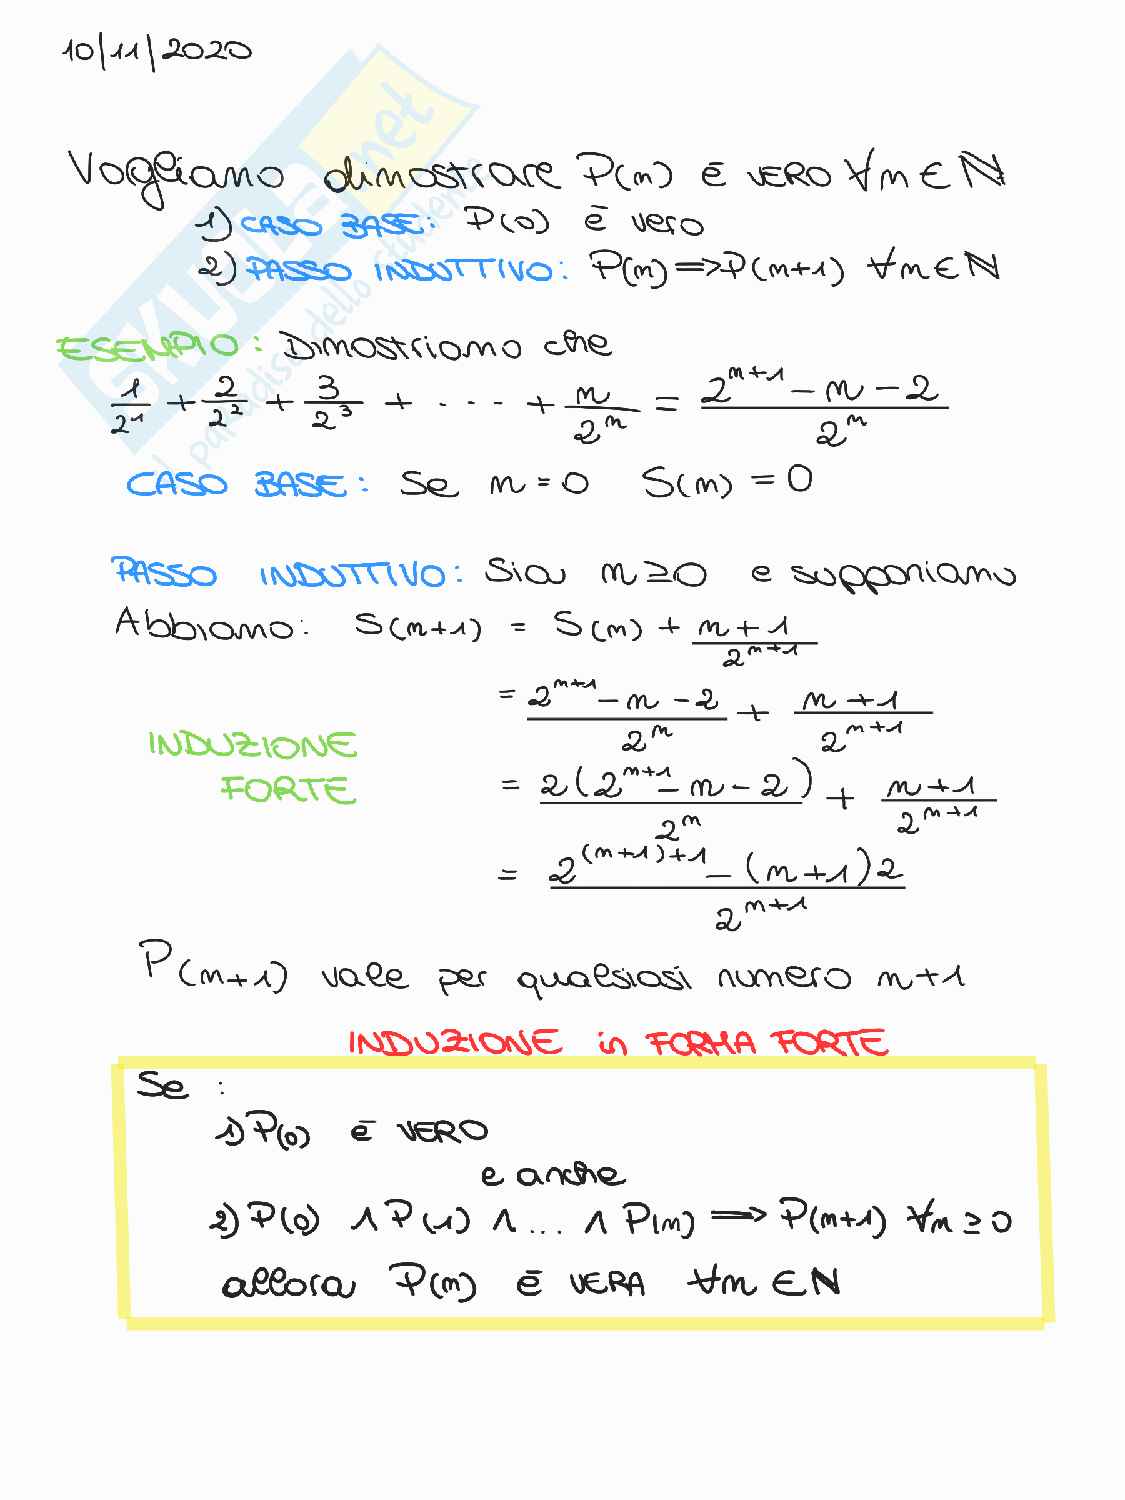 10/11/2020
Vogliamo dimostrare P(n) è VERO ∀n∈ℕ
1) CASO BASE: P(0) è vero
2) PASSO INDUTTIVO: P(n) => P(n+1) ∀n∈ℕ
ESEMPIO: Dimostriamo che
1/2^1 + 2/2^2 + 3/2^3 + ... + n/2^n = (2^(n+1) - n - 2)/2^n
CASO BASE: Se n = 0 S(n) = 0
PASSO INDUTTIVO: Sia n ≥ 0 e supponiamo
Abbiamo: S(n+1) = S(n) + (n+1)/2^(n+1)
= (2^(n+1) - n - 2)/2^n + (n+1)/2^(n+1)
INDUZIONE
FORTE
= 2(2^(n+1) - n - 2)/2^n + (n+1)/2^(n+1)
= (2^((n+1)+1) - (n+1)2)/2^(n+1)
P(n+1) vale per qualsiasi numero n+1
INDUZIONE in FORMA FORTE
Se :
1) P(0) è VERO
e anche
2) P(0) ∧ P(1) ∧ ... ∧ P(n) => P(n+1) ∀n ≥ 0
allora P(n) è VERA ∀n ∈ N
SKUOLA.net
il paradiso dello studente